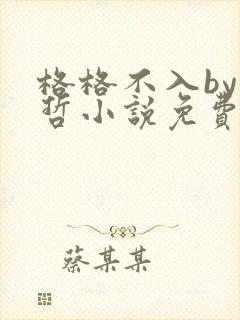 格格不入by
哲小說免費
蔡某某